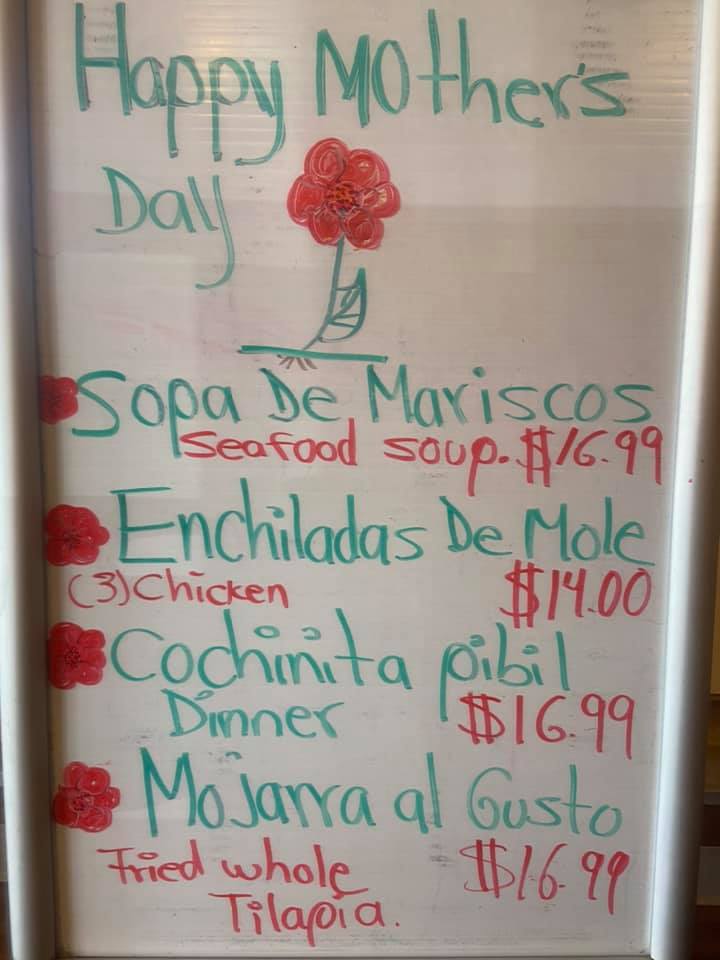 Happy Mother's
Day
Sopa De Mariscos
Seafood soup. $16.99
Enchiladas De Mole
(3) Chicken $14.00
Cochinita pibil
Dinner $16.99
Mojarra al Gusto
Fried whole $16.99
Tilapia.